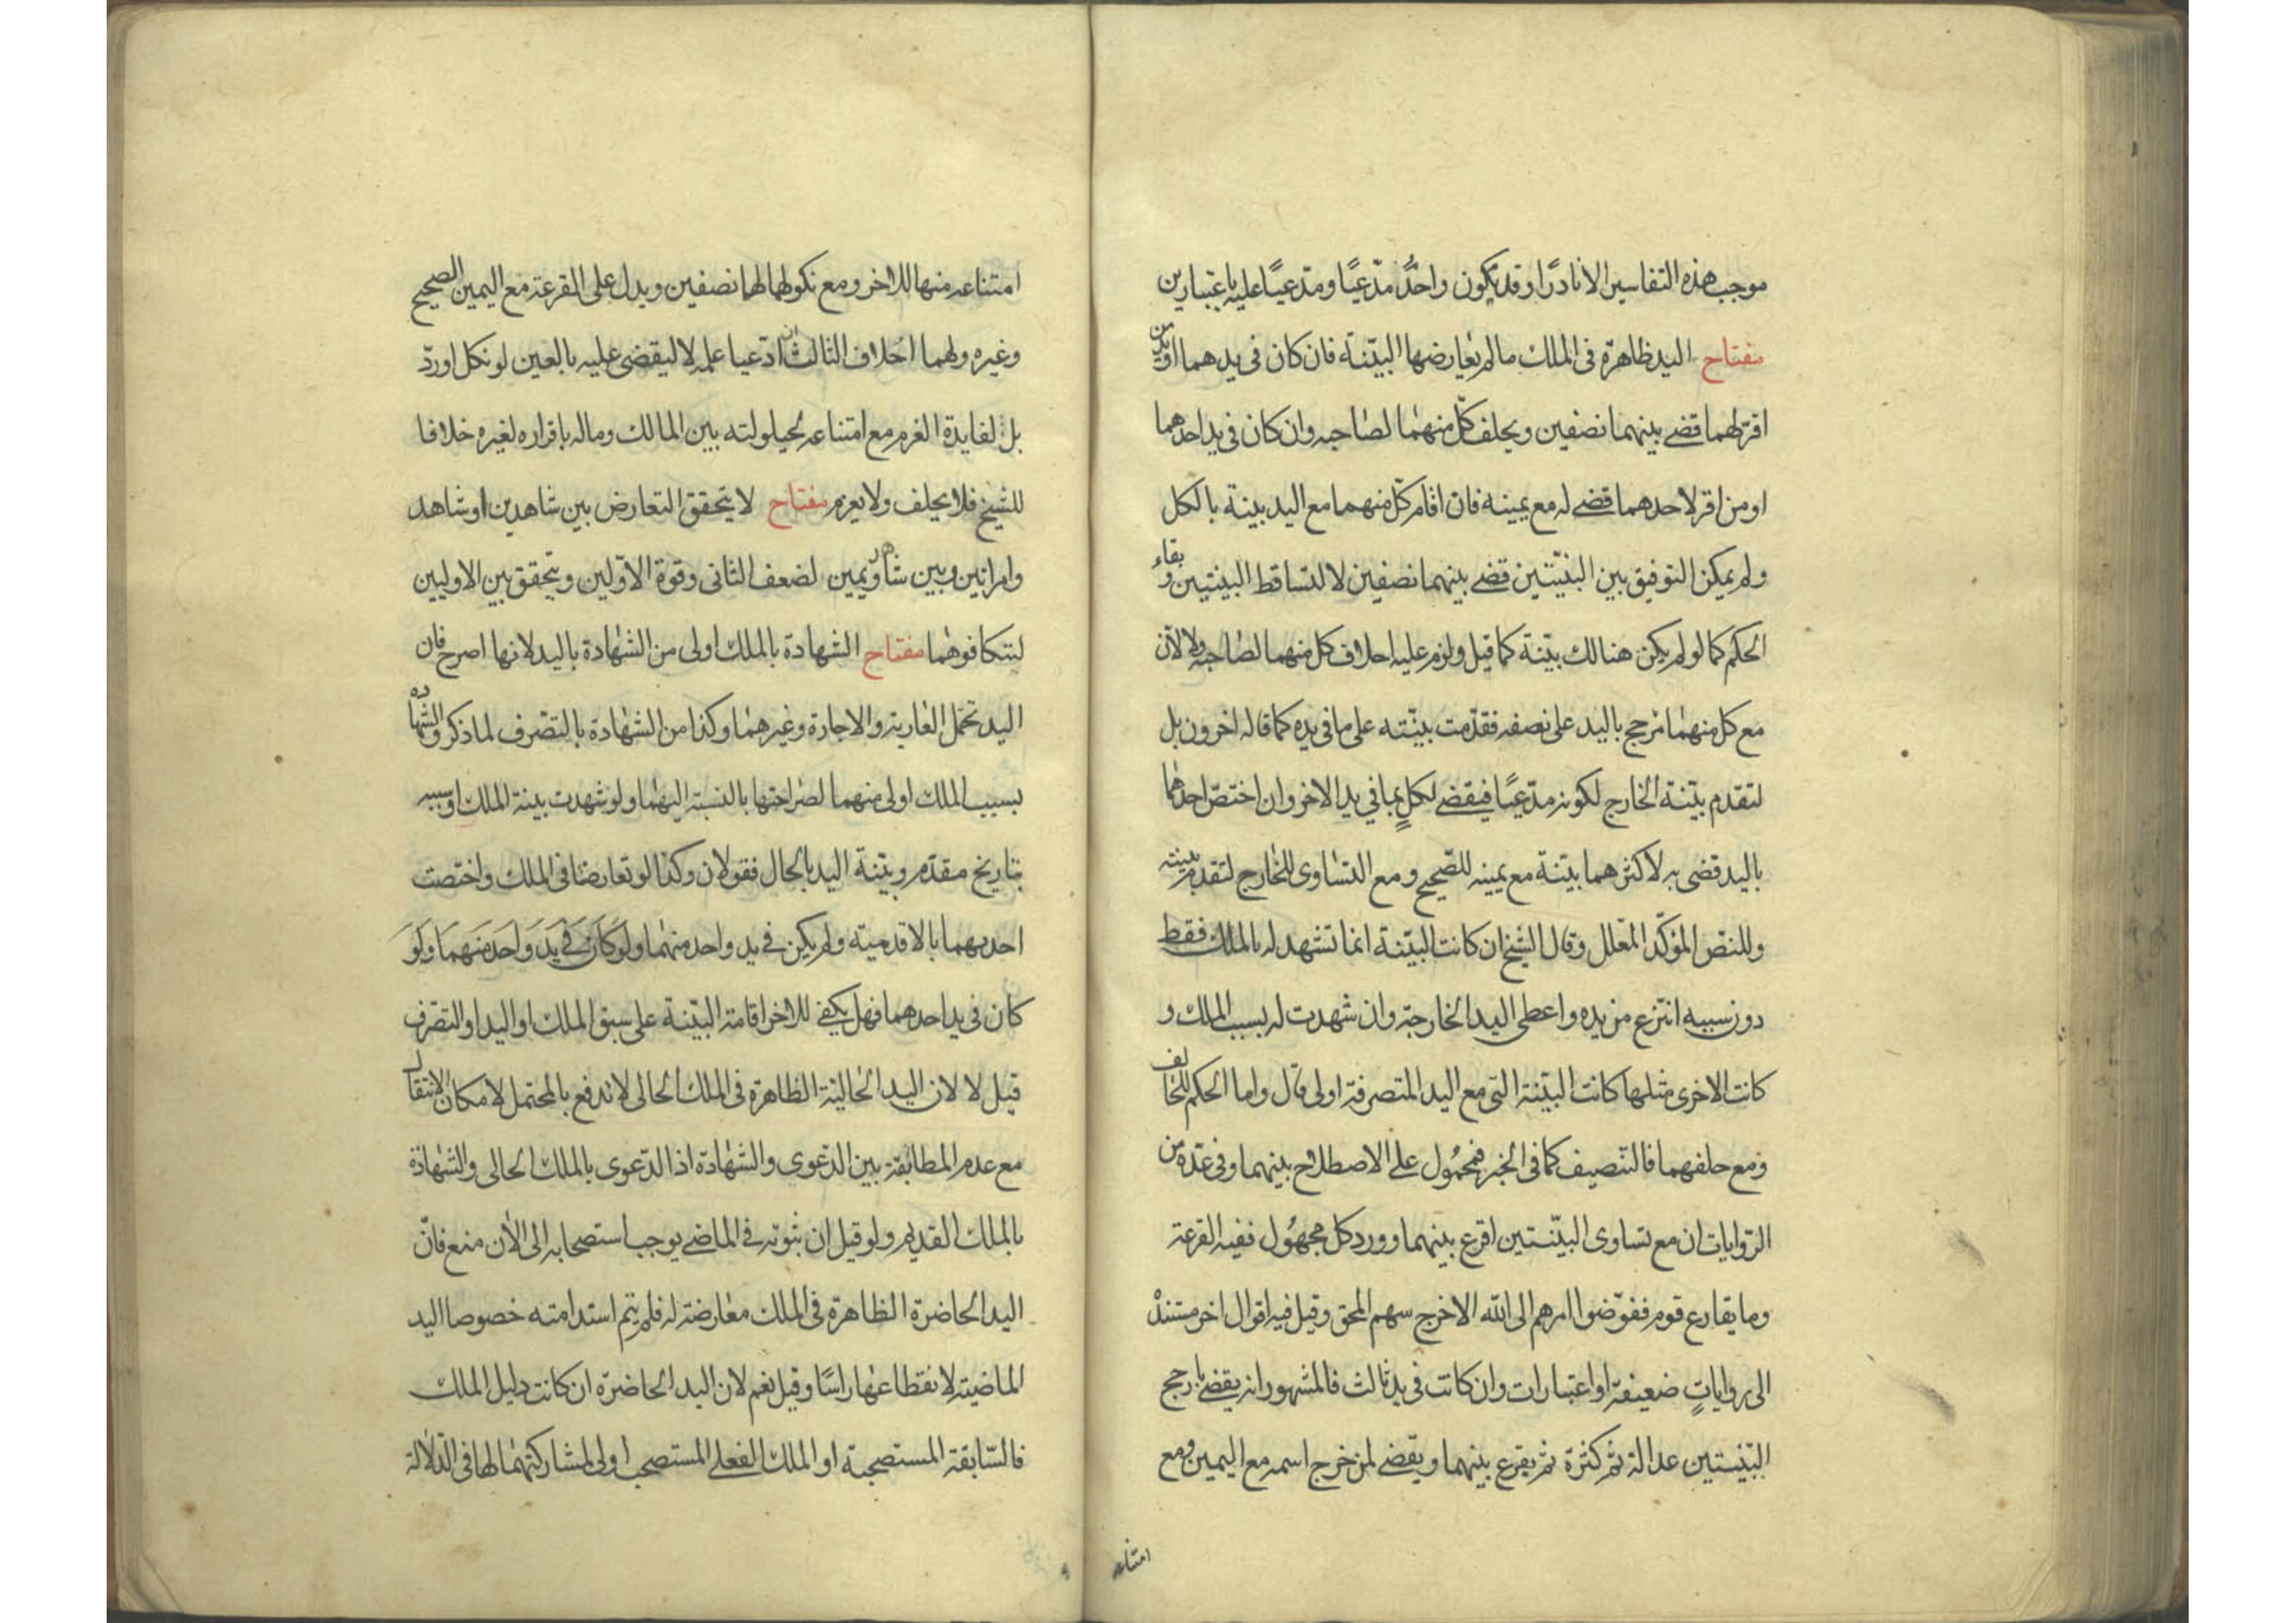 موجب هذه التفاسير الا نادرًا وقد يكون واحدٌ مدّعيًا ومدّعيًا عليه باعتبارين
مفتاح اليد ظاهرة فى الملك ما لم يعارضها البيّنة فان كان فى يدهما او يد من
اقرّ لهما قضى بينهما نصفين ويحلف كلّ منهما لصاحبه وان كان فى يد احدهما
او من اقر لاحدهما قضى له مع يمينه فان اقام كلّ منهما مع اليد بينة بالكل
ولم يمكن التوفيق بين البيّنتين قضى بينهما نصفين لا لتساقط البينتين وبقاء
الحكم كما لو لم يكن هنالك بيّنة كما قيل ولزم عليه احلاف كل منهما لصاحبه ولا لان
مع كل منهما مرجح باليد على نصفه فقدّمت بيّنته على ما فى يده كما قاله اخرون بل
لتقدم بيّنة الخارج لكونه مدّعيًا فيقضى لكلٍ بما في يد الاخر وان اختصّ احدهما
باليد قضى به لاكثرهما بيّنة مع يمينه للصّحيح ومع التساوى للخارج لتقديم بينته
وللنصّ المؤكّد المعّلل وقال الشيخ ان كانت البيّنة انما تشهد له بالملك فقط
دون سببه انتزع من يده واعطى اليد الخارجة وان شهدت له بسبب الملك و
كانت الاخرى مثلها كانت البيّنة التى مع اليد المتصرفة اولى قال واما الحكم للحالف
ومع حلفهما فالتنصيف كما فى الخبر فمحمُول على الاصطلاح بينهما وفى عدّة من
الرّوايات ان مع تساوى البيّنتين اقرع بينهما وورد كل مجهُول ففيه القرعة
وما يقارع قوم ففوّضوا امرهم الى الله الا خرج سهم المحق وقيل فيه اقوال اخر مستندة
الى رواياتٍ ضعيفة او اعتبارات وان كانت فى يد ثالث فالمشهور انه يقضى بارجح
البيّنتين عدالة ثم كثرة ثم يقرع بينهما ويقضى لمن خرج اسمه مع اليمين ومع
امتناعه
امتناعه منها للاخر ومع نكولهما لهما نصفين ويدل على القرعة مع اليمين الصحيح
وغيره ولهما احلاف الثالث ان ادّعيا علمه لا ليقضى عليه بالعين لو نكل او ردّ
بل لفايدة الغرم مع امتناعه لحيلولته بين المالك وماله باقراره لغيره خلافا
للشيخ فلا يحلف ولا يغرم مفتاح لا يتحقق التعارض بين شاهدين او شاهد
وامراتين وبين شاهد ويمين لضعف الثانى وقوة الاوّلين ويتحقق بين الاوليين
لتكافوهما مفتاح الشهادة بالملك اولى من الشهادة باليد لانها اصرح فان
اليد تحمل العارية والاجارة وغيرهما وكذا من الشهادة بالتصّرف لما ذكر والشهادة
بسبب الملك اولى منهما لصراحتها بالنسبة اليهما ولو شهدت بينة الملك او سببه
بتاريخ مقدّم وبيّنة اليد بالحال فقولان وكذا لو تعارضتا فى الملك واختصت
احديهما بالاقدمية ولم يكن في يد واحد منهما ولو كان في يد واحد منهما ولو
كان فى يد احدهما فهل يكفي للاخر اقامة البيّنة على سبق الملك او اليد او التصّرف
قيل لا لان اليد الحالية الظاهرة فى الملك الحالى لا تدفع بالمحتمل لامكان الانتقال
مع عدم المطابقة بين الدّعوى والشهادة اذ الدّعوى بالملك الحالى والشهادة
بالملك القديم ولو قيل ان ثبوته في الماضى يوجب استصحابه الى الان منع فانّ
اليد الحاضرة الظاهرة فى الملك معارضة له فلم يتم استدامته خصوصا اليد
الماضية لانقطاعها راسًا وقيل نعم لان اليد الحاضرة ان كانت دليل الملك
فالسّابقة المستصحبة او الملك الفعلى المستصحب اولى لمشاركتهما لها فى الدّلالة